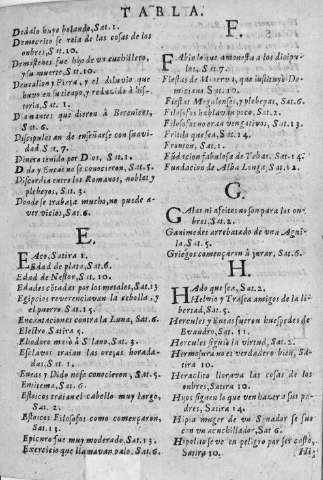 TABLA.
Dedalo huyó bolando, Sat. 1.
Democrito se reía de las cosas de los
onbres, S ir. 10.
Demostenes fue hijo de un cuchillero,
y su muerte, S ir. 10.
Deucalion y Pirra, y el diluvio que
huvo en su tiempo, y reducido à histo-
ria, Sat. 1.
Diamantes que dieron à Berenices,
Sat. 6.
Discipulos an de enseñarse con suavi-
dad, S t. 7.
Dinero temido por Dios, S it. 1.
Dido y Eneas no se conocieron, Sat. 5.
Discordia entre los Romanos, nobles y
plebeyos, Sat. 3.
Donde se trabaja mucho, no puede a-
ver vicios, Sat. 6.
E.
EAco, Satira 1.
Edad de plata, Sat. 6.
Edad de Nestor, Sat. 10.
Edades echadas por los metales, Sat. 13
Egipcios reverenciavan la cebolla, y
el puerro, Sat. 15.
Encantaciones contra la Luna, Sat. 6.
Electro, Satira 5.
Eliodoro med. ò S. lano, Sat. 3.
Esclavos traian las orejas horada-
das, Sat. 1.
Eneas y Dido no se conocieron, Sat. 5.
Emisema, Sat. 6.
Estoicos traian el cabello muy largo,
Sat. 2.
Estoicos Filosofos como començaron,
Sat. 13.
Epicuro fue muy moderado, Sat. 13.
Exercicio que llamavan palo, Sat. 6.
F.
FAbio lo que amonesta a los discipu-
los, S t. 7.
Fiestas de Minerva, que instituyó Do-
miciano, Sat. 10.
Fiestas Megalenses, y plebeyas, Sat. 6.
Filosofos hablavan poco, Sat. 2.
Filosofos no eran vengativos, Sat. 13.
Fritilo que sea, Sat. 14.
Fronton, Sat. 1.
Fũdacion fabulosa de Tebas, Sat. 14.
Fundacion de Alba Longa, Sat. 12.
G.
GAlas ni afeites no son para los on-
bres, Sat. 2.
Ganimedes arrebatado de una Agui-
la, Sat. 5.
Griegos començaron à jurar, Sat. 6.
H.
HAdo que sea, Sat. 2.
Helvio y Trasea amigos de la li-
bertad, Sat. 5.
Hercules y Eneas fueron huespedes de
Evandro, Sat. 11.
Hercules siguió la virtud, Sat. 2.
Hermosura no es verdadero bien, Sa-
tira 10.
Heraclito llorava las cosas de los
onbres, Satira 10.
Hijos siguen lo que ven hazer a sus pa-
dres, Satira 14.
Hipia muger de un Senador se fue
con un acuchillador, Sat. 6.
Hipolito se ve en peligro por ser casto,
Satira 10.